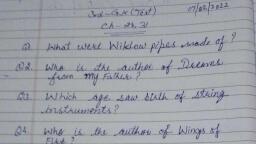 07/02/2022
Ch-29, 31
Q1. What were Willow pipes made of?
Q2. Who is the author of Dreams
from my Father?
Q3. Which age saw birth of string
instruments?
Q4. Who is the author of Wings of
Fire?